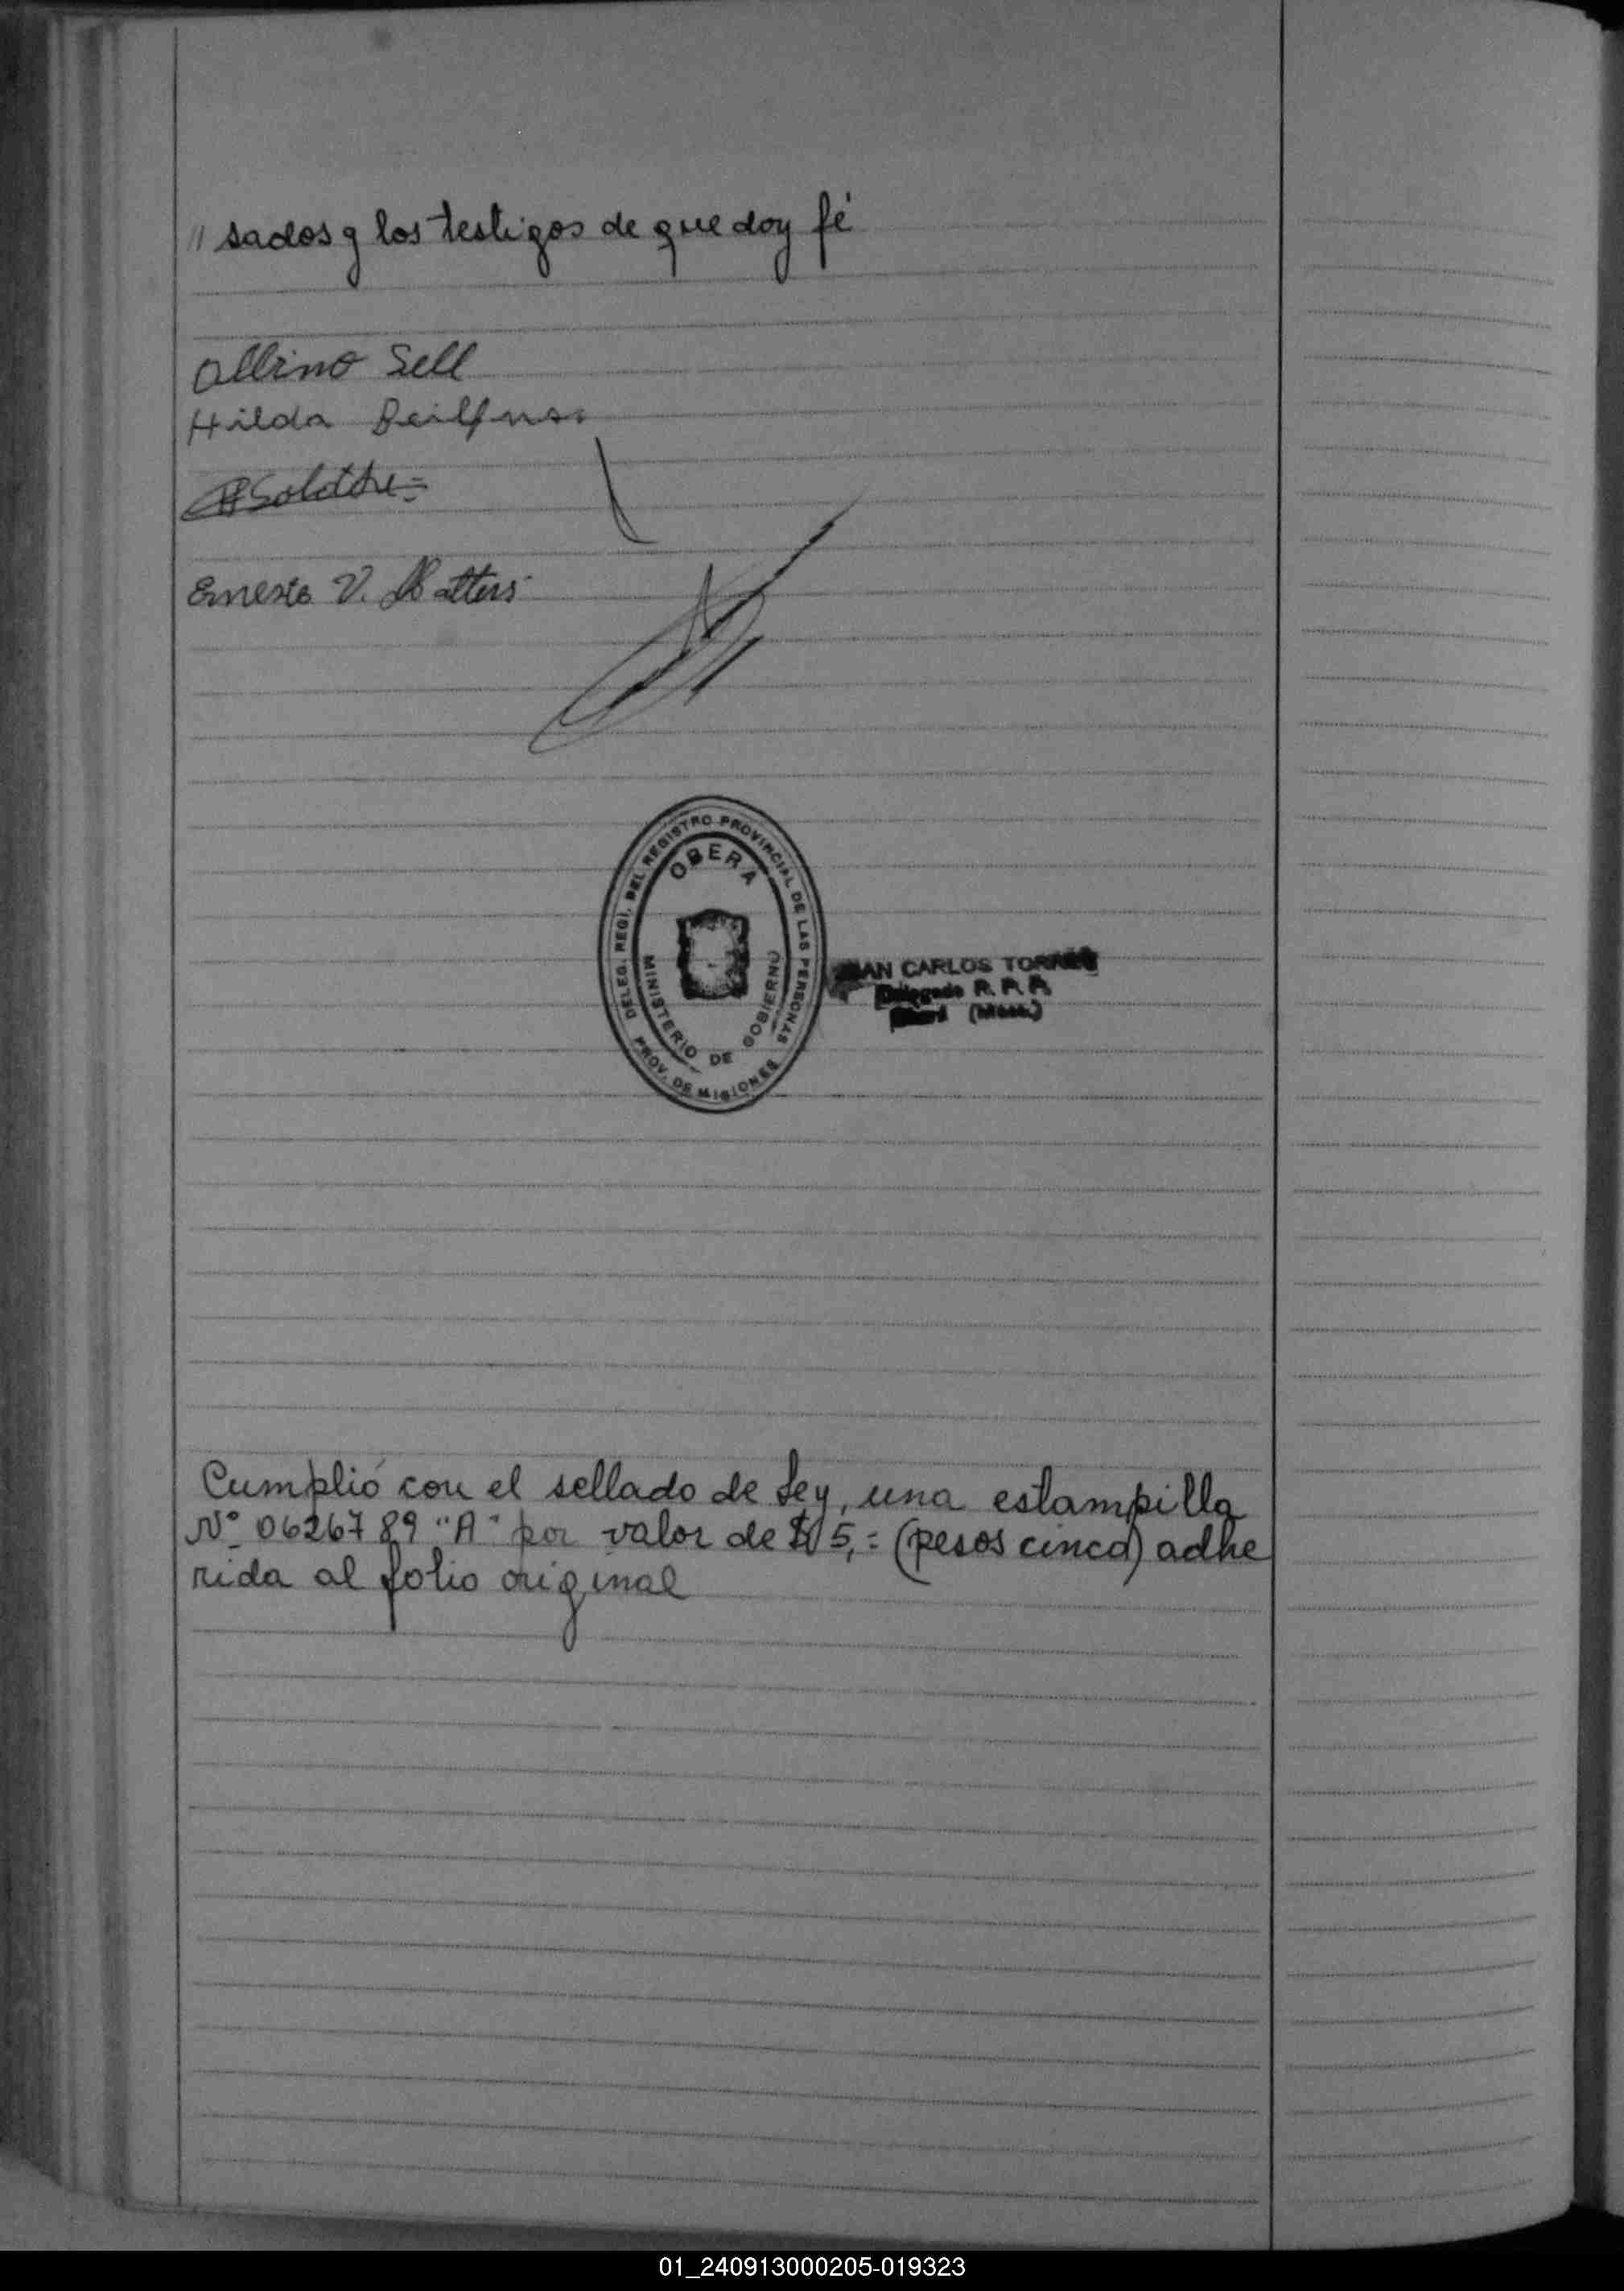 " sados y los testigos de que doy fé
Albino Sell
Hilda
Ernesto V.
DELEG. REGI. DEL REGISTRO PROVINCIAL DE LAS PERSONAS
OBERA
MINISTERIO DE GOBIERNO
PROV. DE MISIONES
JUAN CARLOS TORRES
Delegado R. P. P.
Oberá (Mnes.)
Cumplió con el sellado de Ley, una estampilla
Nº 0626789 "A" por valor de $ 5,= (pesos cinco) adhe
rida al folio original
01_240913000205-019323